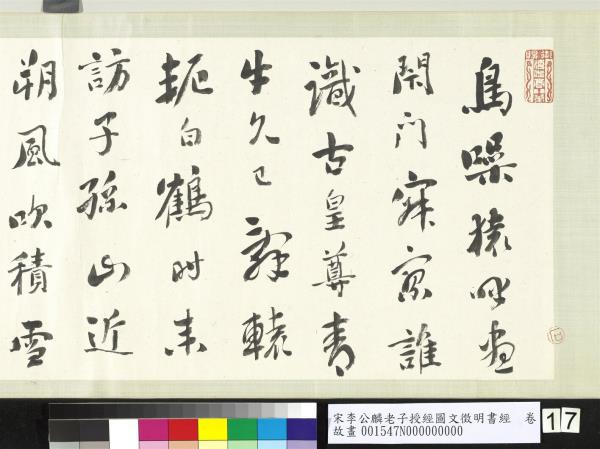 鳥噪猿呼晝
閉門寂寥誰
識古皇尊青
牛久已辭轅
軛白鶴時來
訪子孫山近
朔風吹積雪
宋李公麟老子授經圖文徵明書經 卷
故畫001547N000000000
17